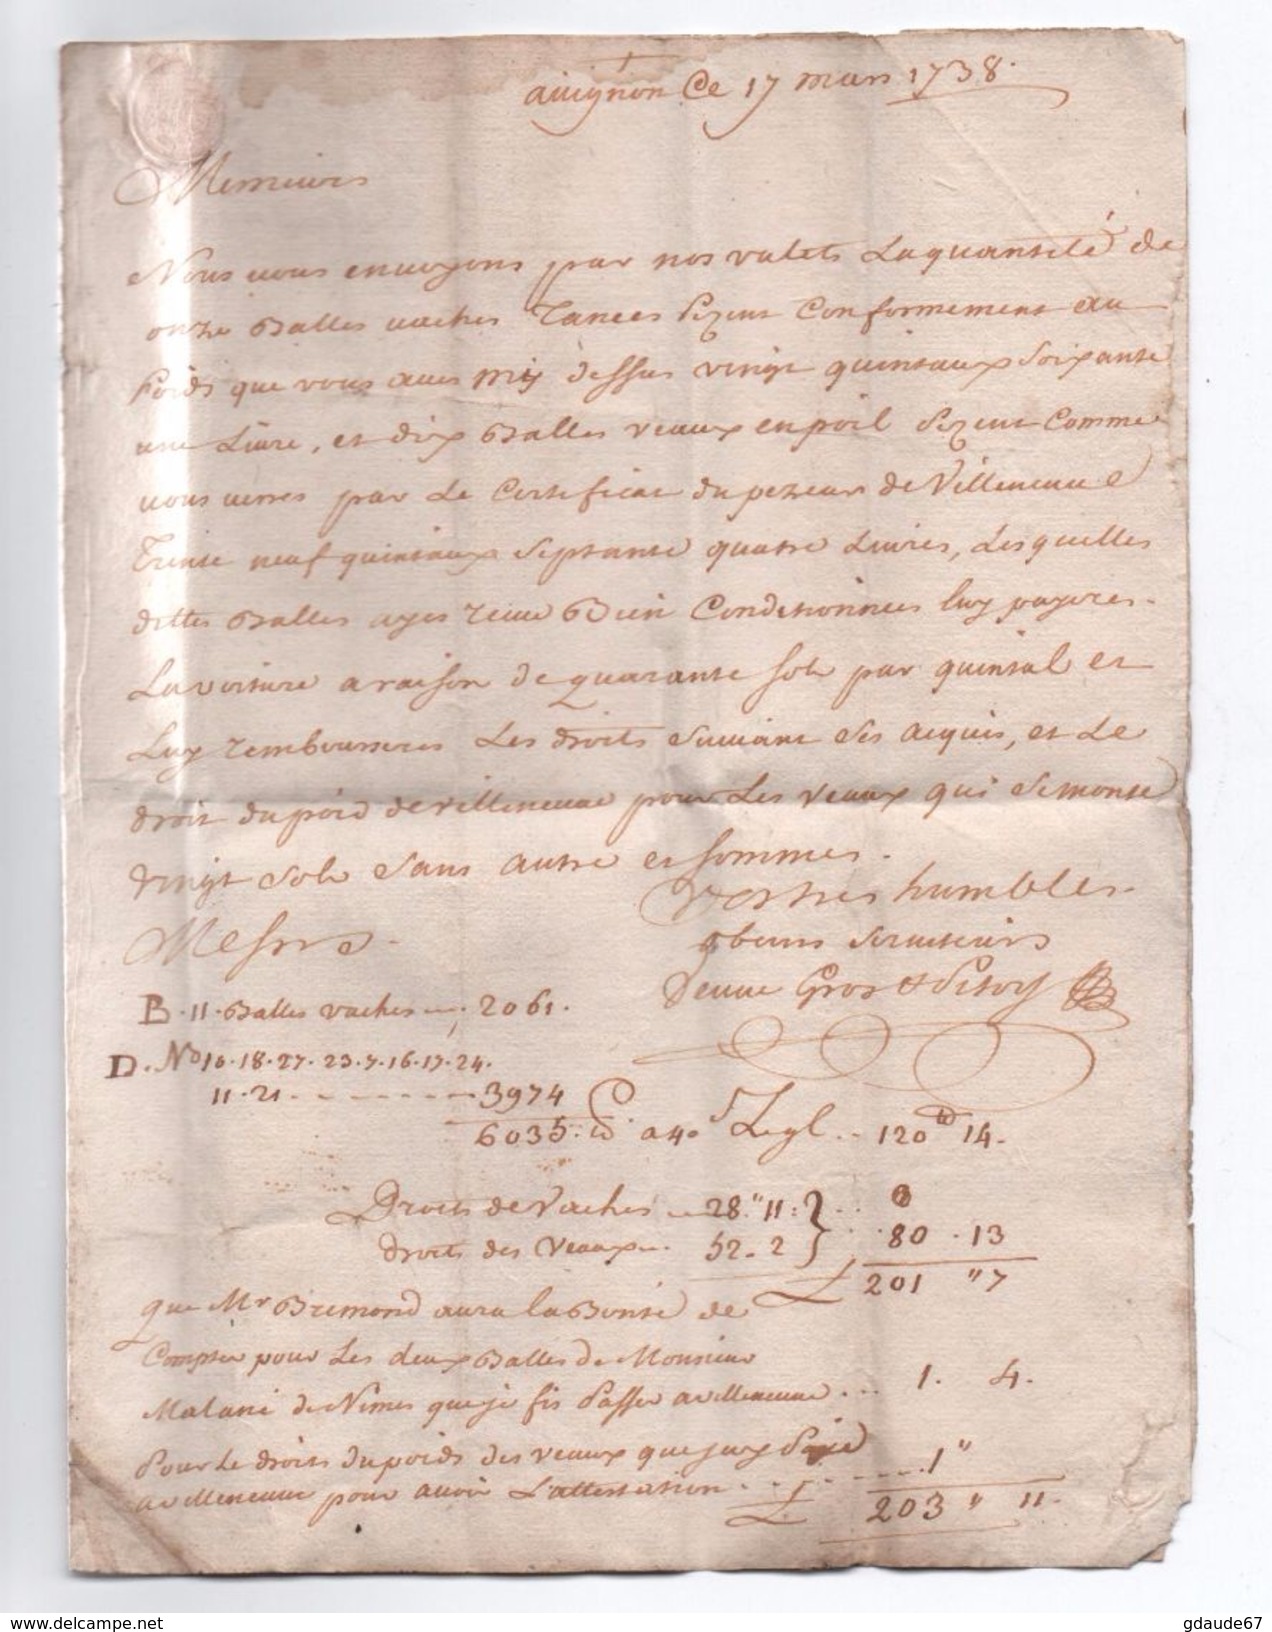 avignon Ce 17 mars 1738.
Messieurs
Nous vous envoyons par nos valets La quantité de
onze Balles vaches Tanees Pezent Conformement au
Poids que vous aves mis dessus vingt quintaux Soixante
une Livre, et dix Balles veaux en poil Pezent Comme
vous verres par Le Certificat du pezeur de Villeneuve
Trente neuf quintaux Septante quatre Livres, Lesquelles
dittes Balles ayes Receu Bien Conditionnees luy payeres
La voiture a raison de quarante sols par quintal et
Luy Rembourseres Les droits Suivant Ses acquis, et Le
droit du poid de villeneuve pour Les veaux qui Se monte
vingt Sols Sans autre et sommes.
Vostres humbles
obeins Serviteurs
Messrs
Veuve Gros &
B. 11. Balles vaches 2061.
D. No 10. 18. 27. 23. 7. 16. 17. 24.
11. 21. 3974
6035. a 40s 120 14.
Droits de Vaches 28 " 11 :
droits des Veaux 52 . 2 80 . 13
L 201 " 7
que Mr Bremond aura la Bonté de
Compter pour Les deux Balles de Monsieur
Malané de Nimes que je fis Passer a villeneuve . . . 1. 4.
Pour Le droits du poids des veaux que jay Payé
a villeneuve pour avoir L'attestation . . . 1 "
L 203 " 11.
gdaude67